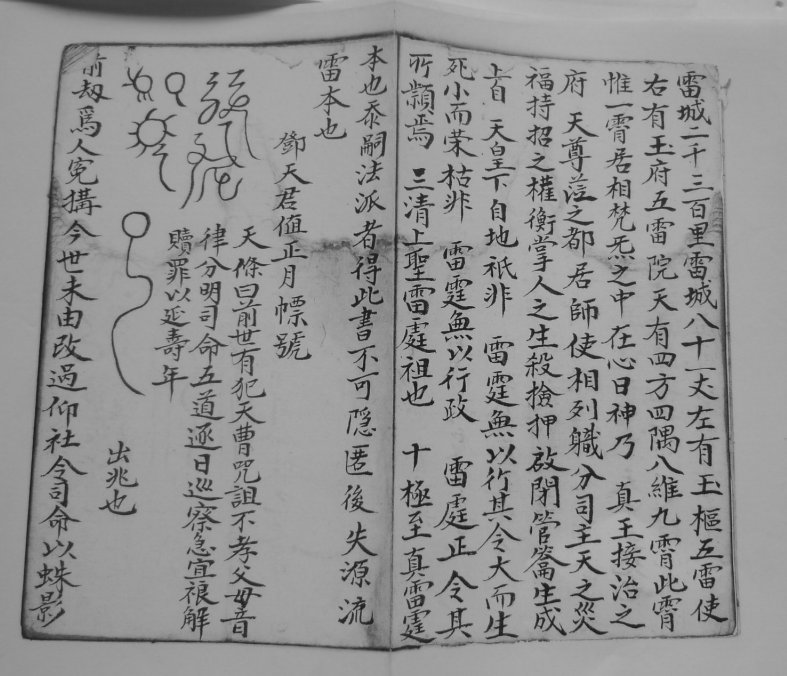 雷城二千三百里雷城八十一丈左有玉樞五雷使
右有玉府五雷院天有四方四隅八維九霄此霄
惟一霄居相梵炁之中在心曰神乃 真王接治之
府 天尊蒞之都居師使相列職分司主天之災
福持招之權衡掌人之生殺撿押啟閉管籥生成
上自 天皇下自地祇非 雷霆無以行其令大而生
死小而荣枯非 雷霆無以行政 雷霆正令其
所顓焉 三清上聖雷霆祖也 十極至真雷霆
本也忝嗣法派者得此書不可隱匿後失源流
雷本也
鄧天君值正月幖號
天條曰前世有犯天曹咒詛不孝父母音
律分明司命五道逐日巡察急宜禳解
贖罪以延壽年
出兆也
前劫爲人寃搆今世未由改過仰社令司命以蛛影